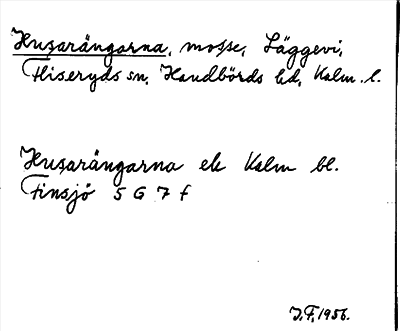 Husarängarna, mosse, Läggevi,
Fliseryds sn, Handbörds hd, Kalm. l.
Husarängarna ek Kalm bl.
Finsjö 5 G 7 f
J.F. 1956.